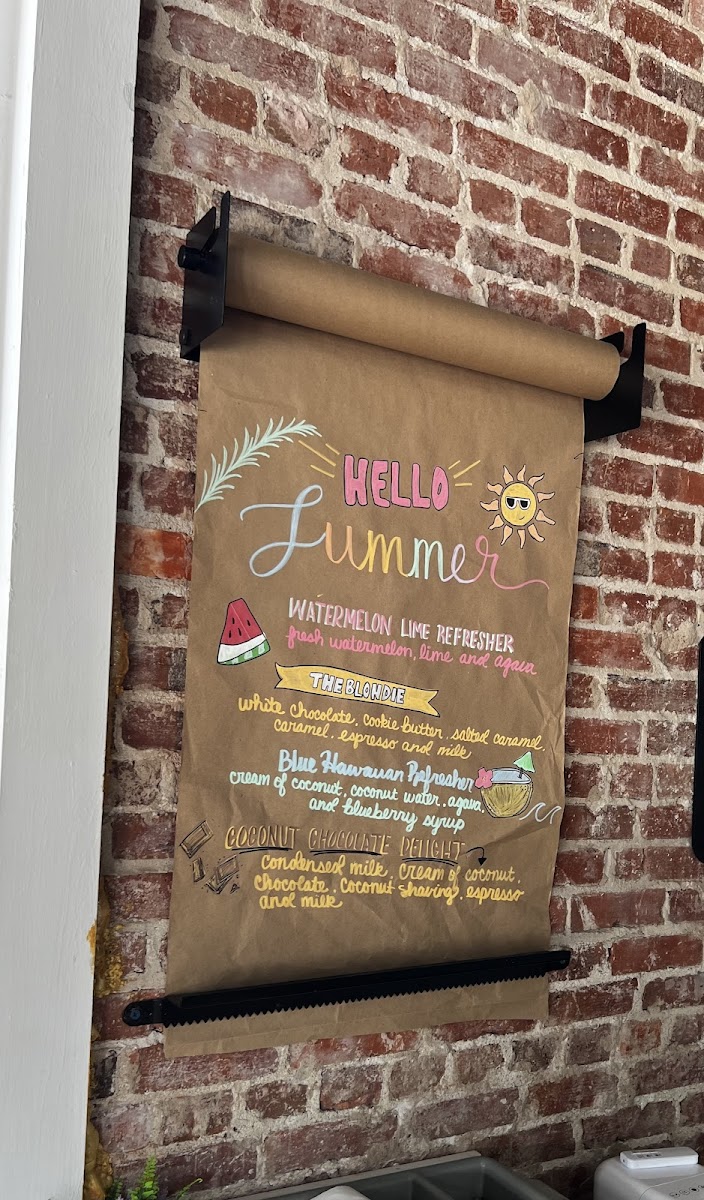 HELLO
Summer
WATERMELON LIME REFRESHER
fresh watermelon, lime and agava
THE BLONDIE
white chocolate, cookie butter, salted caramel,
caramel, espresso and milk
Blue Hawaiian Refresher
cream of coconut, coconut water, agava,
and blueberry syrup
COCONUT CHOCOLATE DELIGHT
condensed milk, cream of coconut,
chocolate, coconut shavings, espresso
and milk